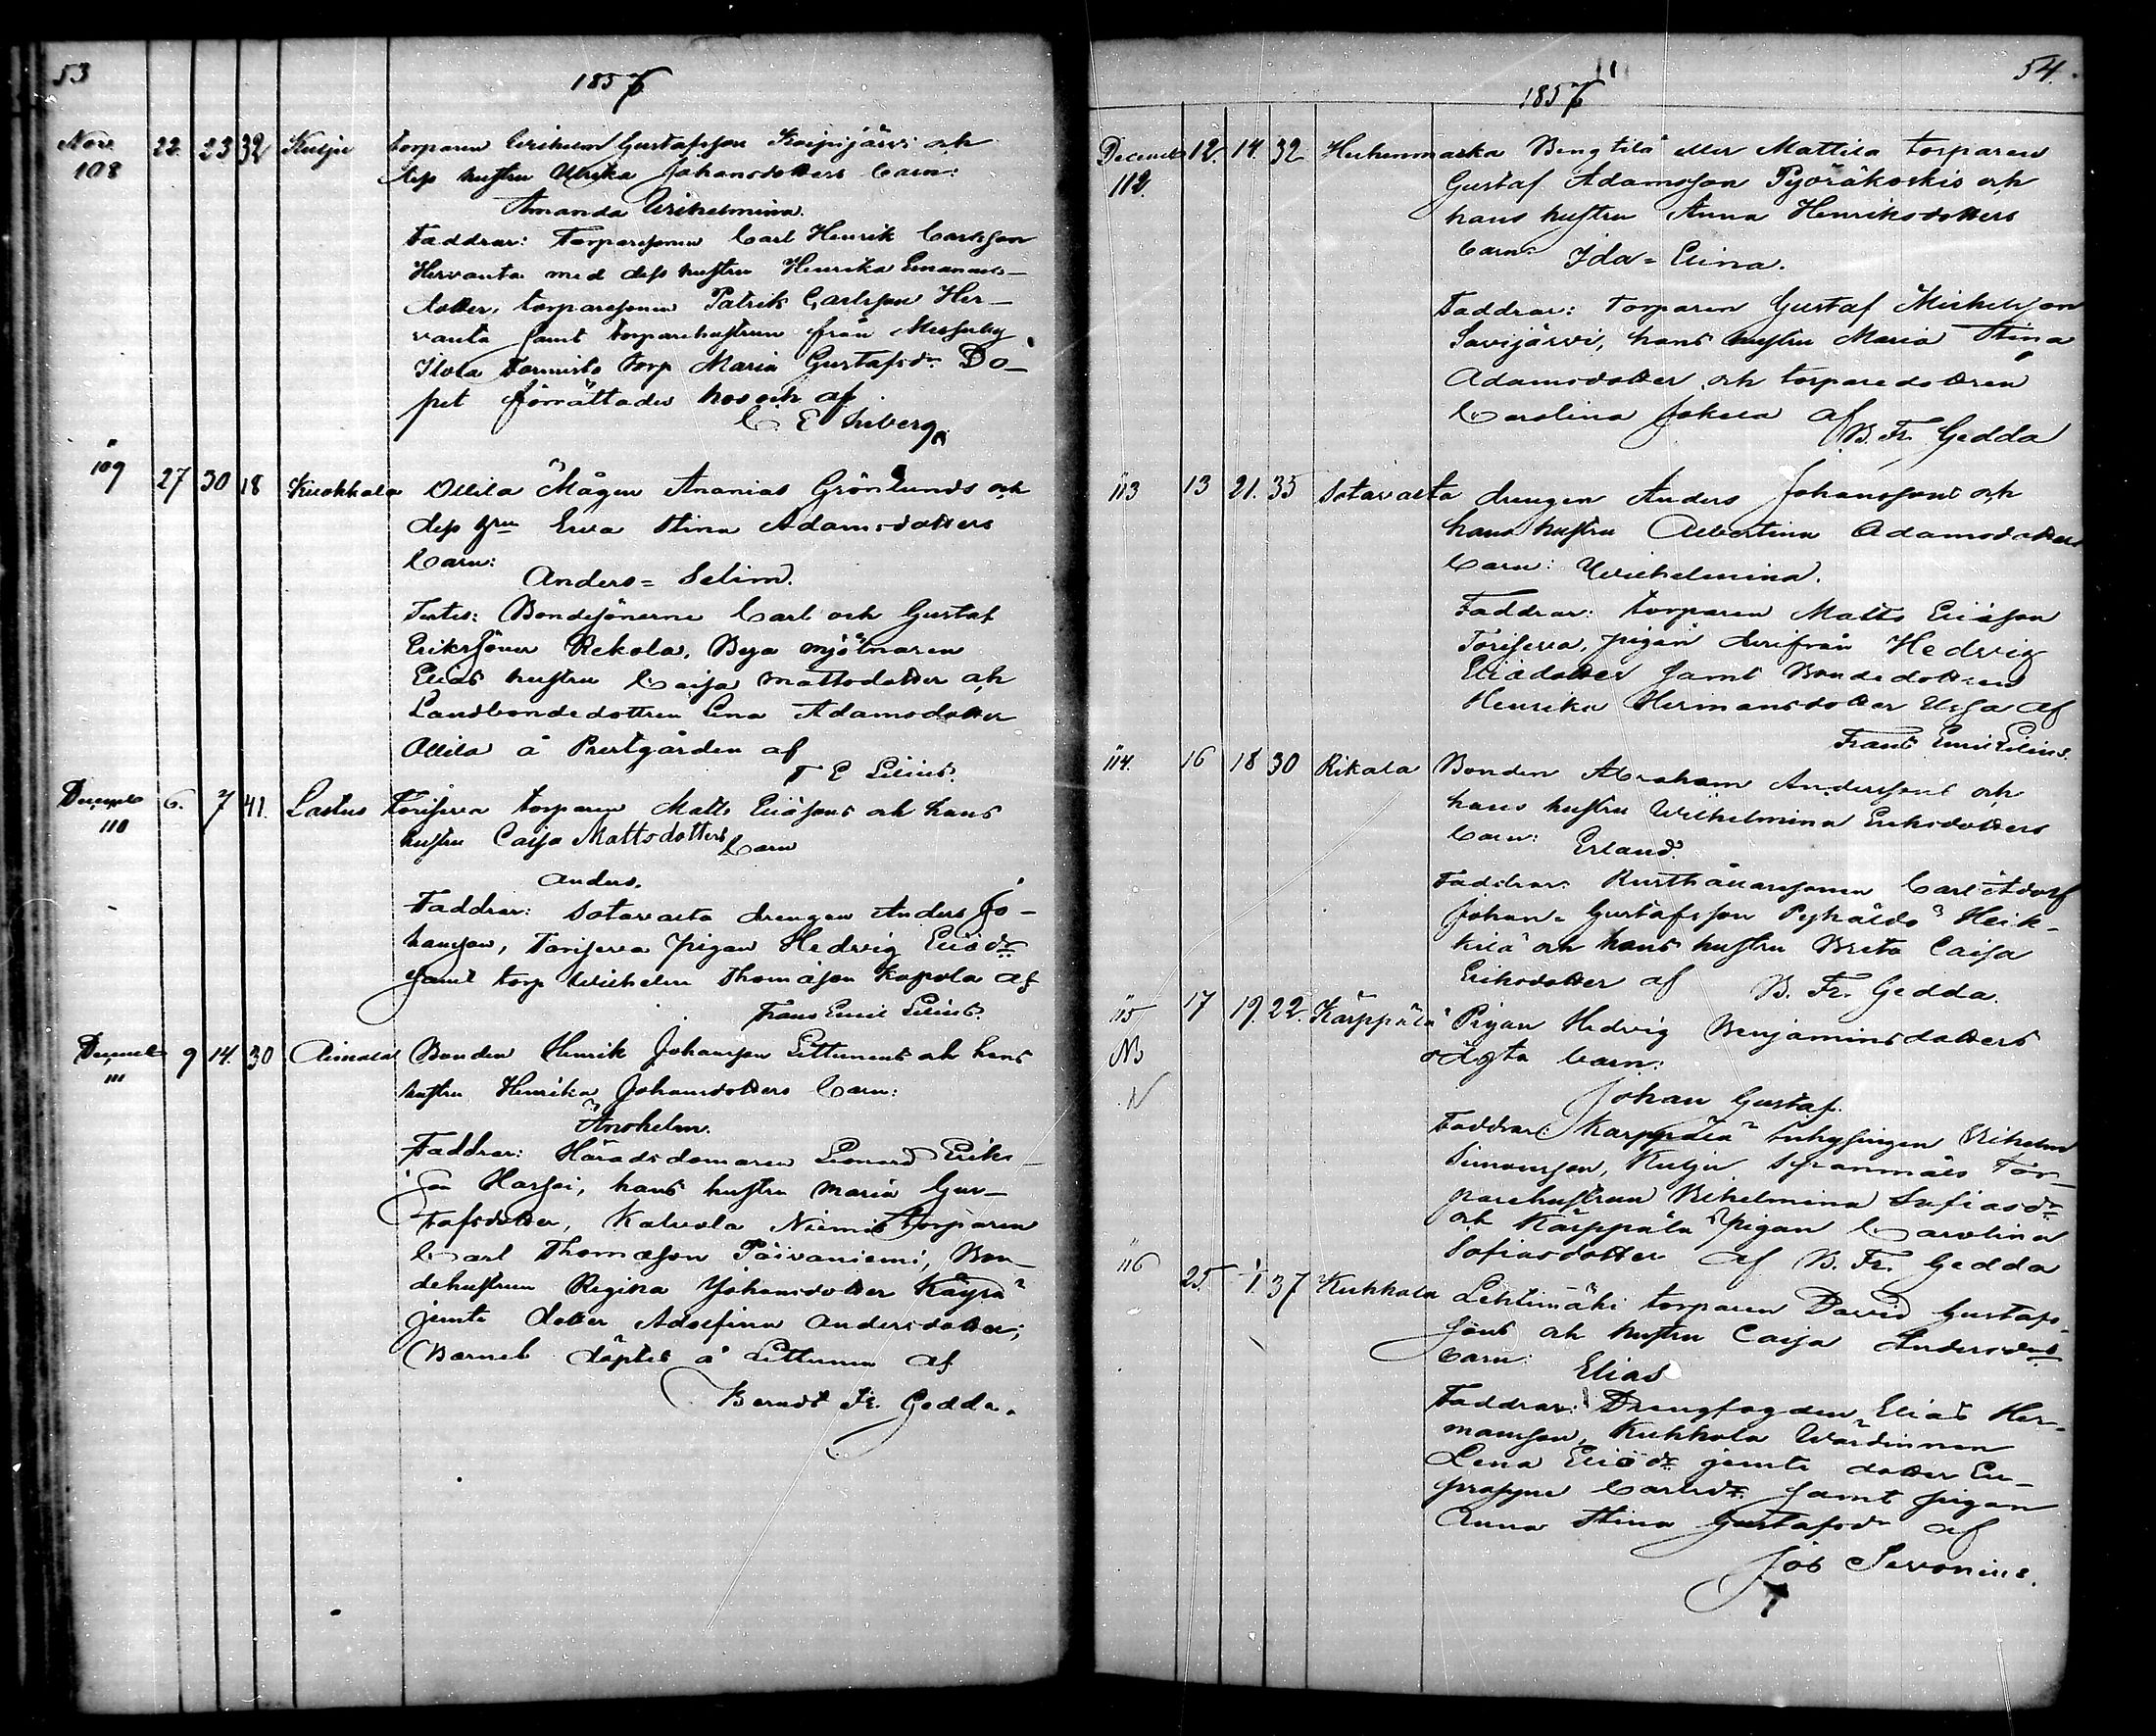 53
1857
Nov. 108 22. 23 32 Kulju torparen Wilhelm Gustafsson Koipijärvi och
dess hustru Ulrika Johansdotters barn:
Amanda Wilhelmina.
Faddrar: Torparesonen Carl Henrik Carlsson
Hervanta med dess hustru Henrika Emanuels-
dotter, torparesonen Patrik Carlsson Her-
vanta samt torparehustrun från Messuby
Ilola Tormisto torp Maria Gustafsdr. Do-
pet förrättades hos och af
C. E. Inberg
" 109 27 30 18 Kuokkala Ollila Mågen Ananias Grönlunds och
dess hru Ewa Stina Adamsdotters
barn:
Anders = Selim.
Testes: Bondesönerne Carl och Gustaf
Erikssöner Rekola, Bya mjölnaren
Elias hustru Caisa Mattsdotter och
Landbondedottren Lena Adamsdotter
Ollila å Prestgården af
F E Lilius.
December 110 6. 7 41. Lastus Torisewa torparen Matts Eliæsons och hans
hustru Caisa Mattsdotters barn
Anders.
Faddrar: Sotavalta drengen Anders Jo-
hansson, Torisewa pigan Hedvig Eliædr
samt torp Wilhelm Thomasson Kopola af
Frans Emil Lilius.
December 111 9 14. 30 Aimala Bonden Henrik Johansson Littunens och hans
hustru Henrika Johansdotters barn:
Anshelm.
Faddrar: Häradsdomaren Leonard Eriks-
son Harjai, hans hustru Maria Gus-
tafsdotter, Kalvola Niemis torparen
Carl Thomasson Päivaniemi, Bon-
dehustrun Regina Johansdotter Käyrä
jemte dotter Adolfina Andersdotter;
Barnet döptes å Littunen af
Berndt Fr. Gedda.
54.
1857
December 112. 12. 14. 32 Herhenmaska Bengtilä eller Mattila torparen
Gustaf Adamsson Pyöräkoskis och
hans hustru Anna Henriksdotters
barn: Ida = Elina.
Faddrar: Torparen Gustaf Michelsson
Savijärvi, hans hustru Maria Stina
Adamsdotter och torparedottren
Carolina Jokela af
B. Fr. Gedda
113 13 21. 35 Sotavalta drengen Anders Johanssons och
hans hustru Albertina Adamsdotters
barn: Wilhelmina.
Faddrar: torparen Matts Eliæson
Torisewa, pigan derifrån Hedvig
Eliædotter samt Bondedottren
Henrika Hermansdotter Uksa af
Frans Emil Lilius.
114. 16 18 30 Rikala Bonden Abraham Anderssons och
hans hustru Wilhelmina Eriksdotters
barn: Erland.
Faddrar: Rusthållaresonen Carl Adolf
Johan Gustafsson Pyhäldö Heik-
kilä och hans hustru Brita Caisa
Eriksdotter af B. Fr. Gedda.
115 17 19. 22. Kärppälä Pigan Hedvig Benjaminsdotters
NB oägta barn:
N Johan Gustaf.
Faddrar: Karppälä inhysingen Wilhelm
Simonsson, Kulju Tor-
parehustrun Wilhelmina Sofiasdr
och Kärppälä pigan Carolina
Sofiasdotter af B. Fr. Gedda
" 116 25. 1/1 37 Kuhkala Lehtimäki torparen David Gustafs-
sons och hustru Caisa Andersdrs
barn: Elias
Faddrar: Drengfogden Elias Her-
mansson, Kuhkala Wärdinnan
Lena Eliædr jemte dotter Eu-
frosyne Carlsdr. samt pigan
Anna Stina Gustafsdr af
Job Sevonius.